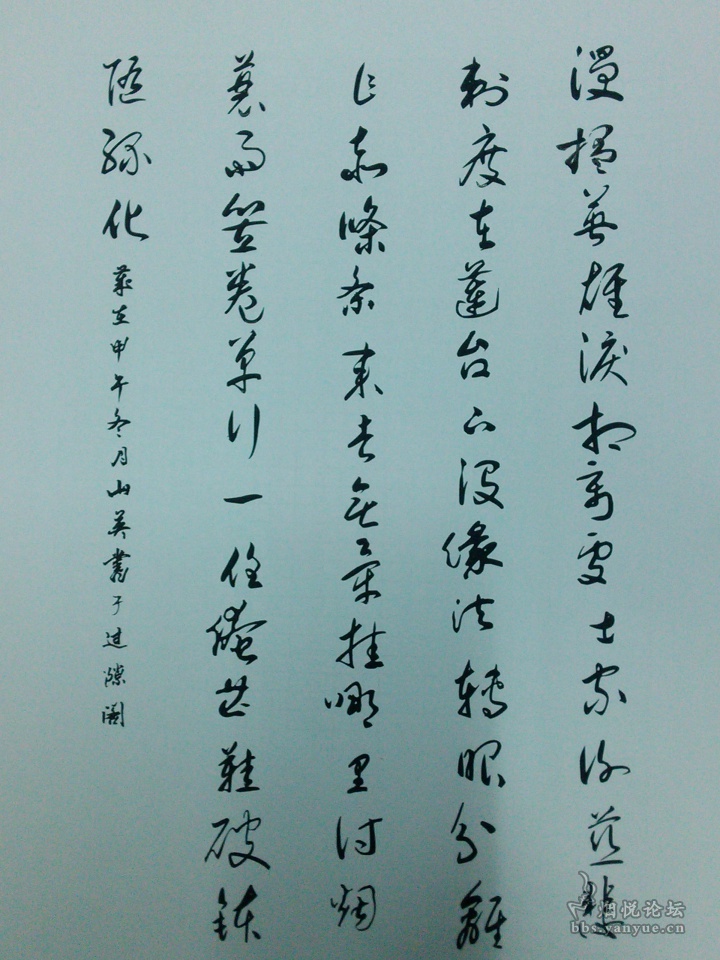 漫揾英雄淚相离處士家谢慈悲
剃度在蓮台下没緣法轉眼分離
乍赤條条来去無牵挂哪里讨烟
蓑雨笠卷单行一任俺芒鞋破鉢
随緣化
歲在甲午冬月山英書于过隙阁
烟悦论坛
bbs.yanyue.cn